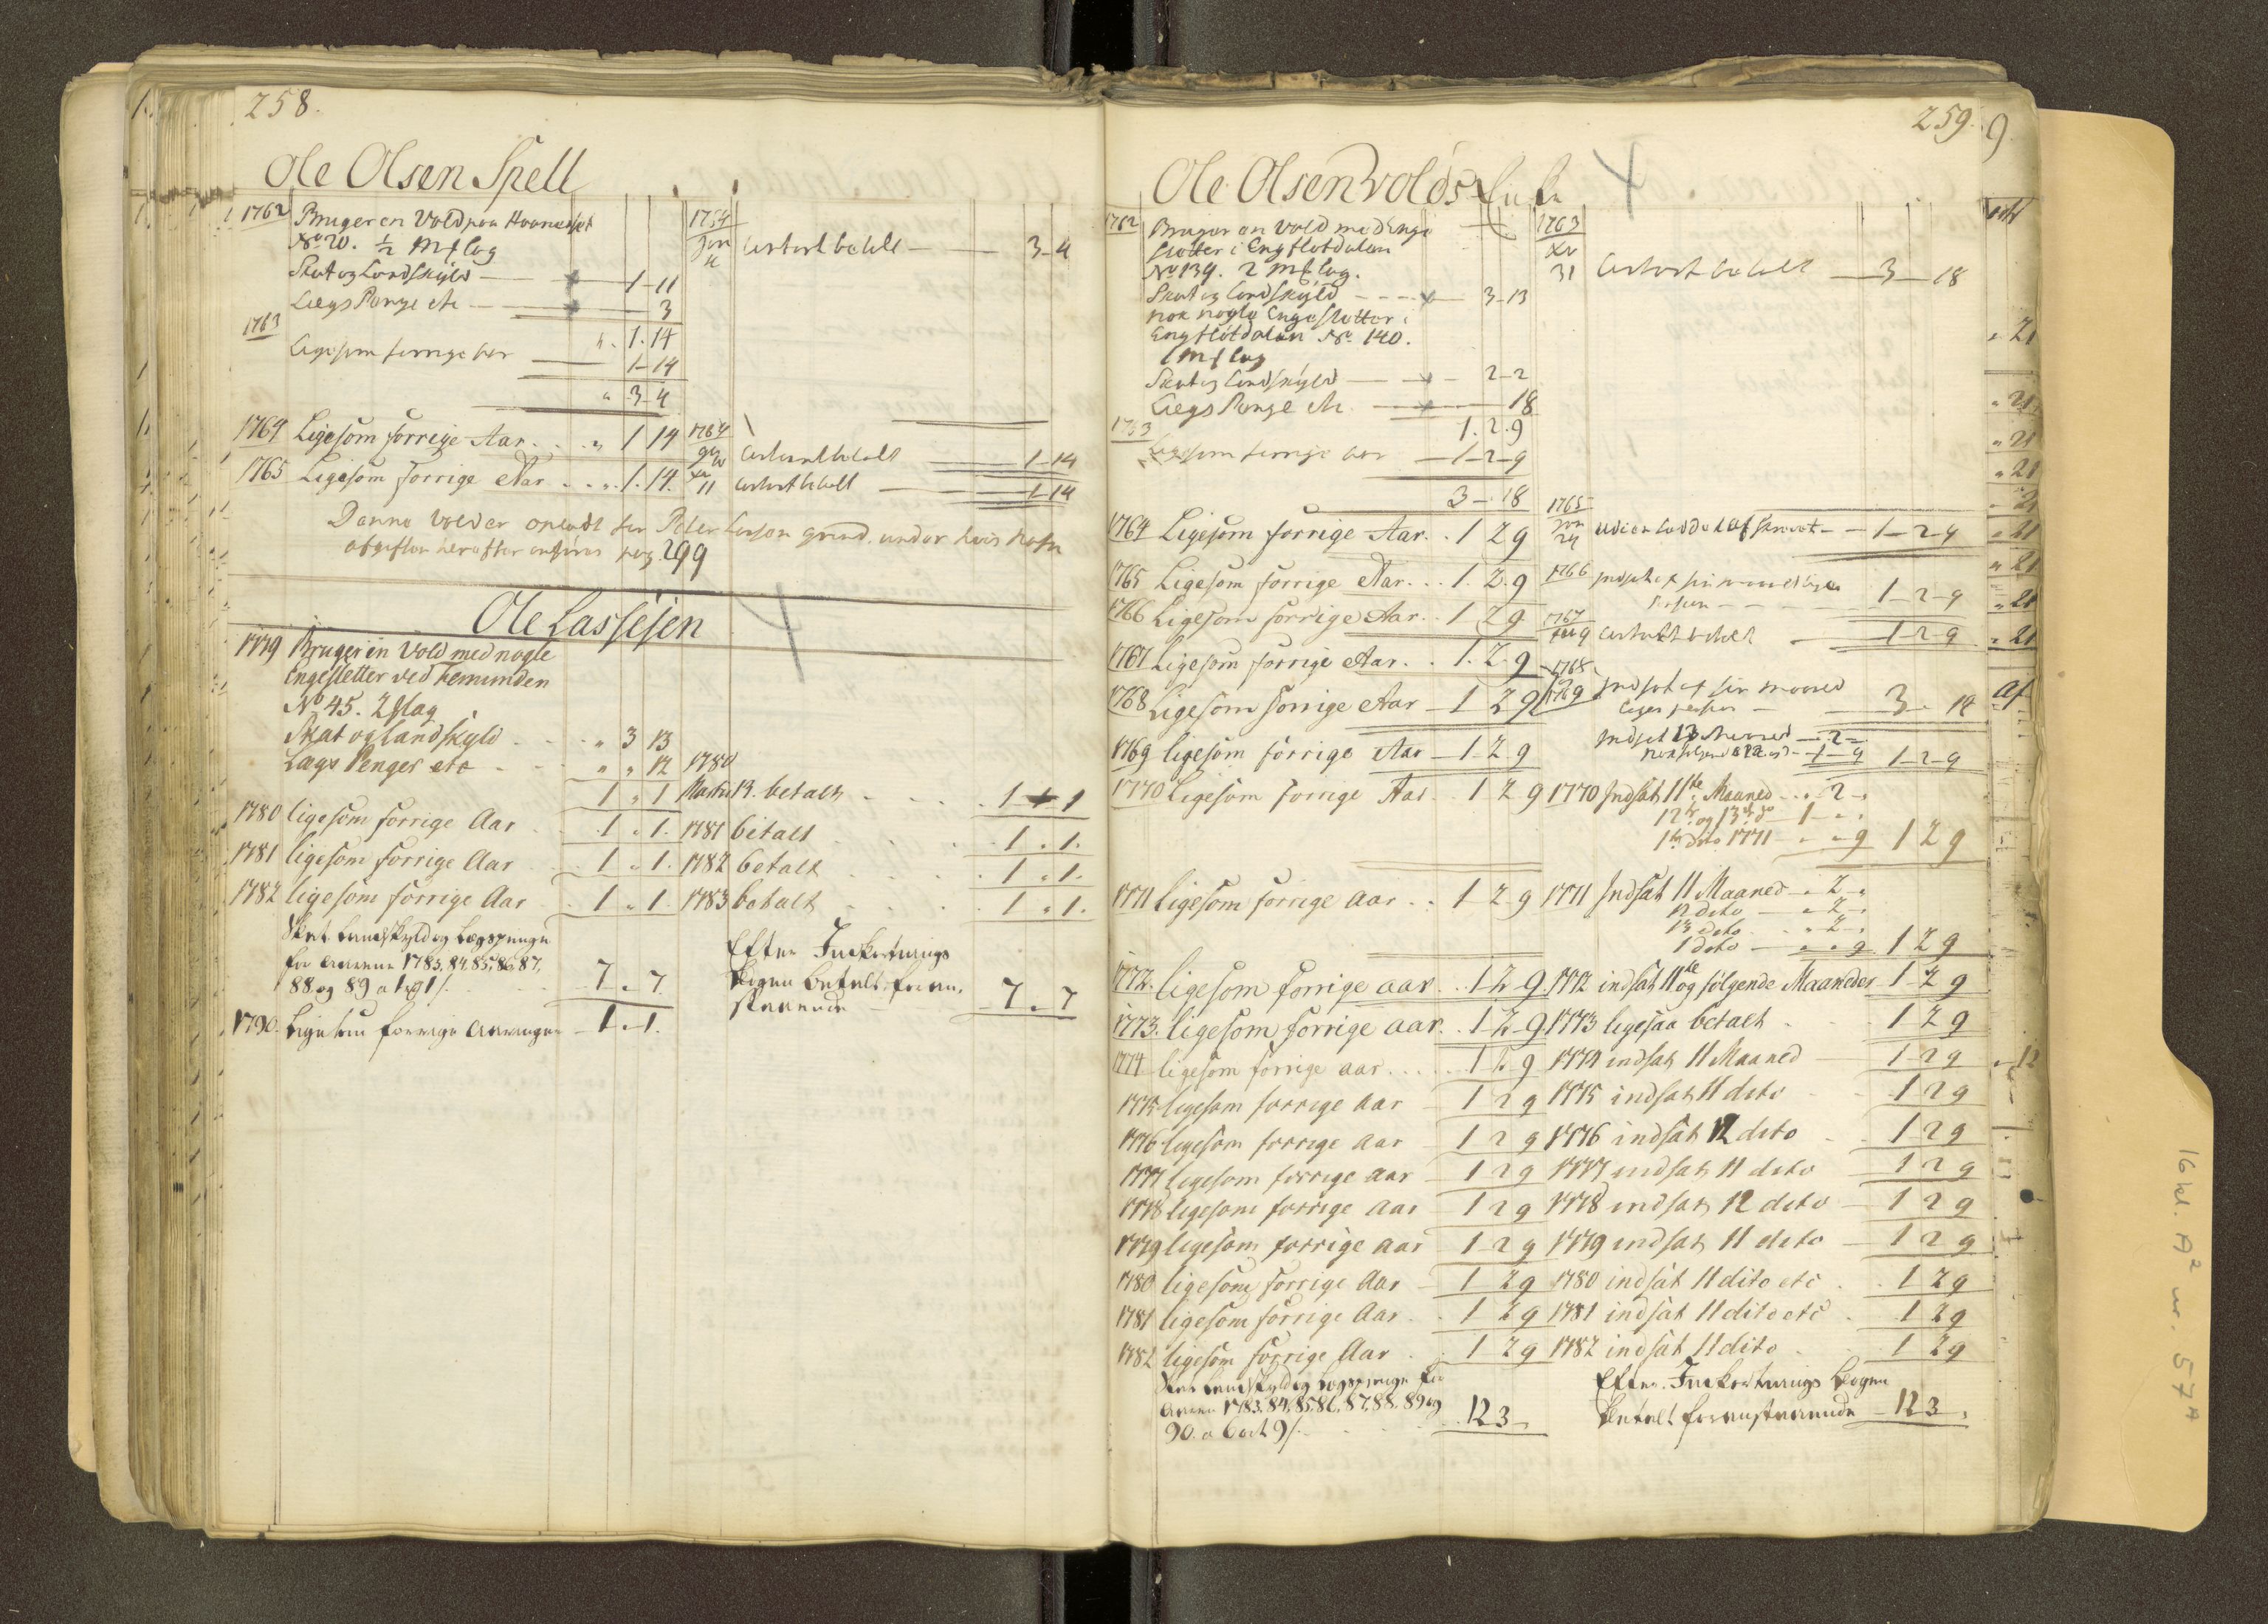 258.
Ole Olsen Spell
1762 Bruger en Vold paa
No 20. 1/2 Mslag
Skat og Landskyld — 1-11
Lægs Penge etc — 3
1.14
1763 Ligesom forrige her — 1-14
3-4
1764 Jan 4 Contant betalt — 3-4
1764 Ligesom forrige Aar . . " 1 14
1764 Contant betalt — 1-14
1765 Ligesom forrige Aar . . . 1.14.
11 Contant betalt — 1-14
Denne Vold er opladt for Peder Larsen grind. under hvis Nafn
afgiften herefter anføres pag 299
Ole Lassesen
1779 Bruger en Vold med nogle
Engesletter ved Femunden
No 45. 2 Slag
Skat og Landskyld . . " 3 13
Lægs Penger etc . . " " 12
1 " 1
1780 Martii 13. betalt . . . 1 " 1
1780 ligesom forrige Aar . 1 " 1. 1781 betalt . . . 1 " 1.
1781 ligesom forrige Aar . 1 " 1. 1782 betalt . . . 1 " 1.
1782 ligesom forrige Aar . 1 " 1. 1783 betalt . . . 1 " 1.
Skat Landskyld og Lægspenge
for Aarene 1783, 84, 85, 86, 87,
88 og 89 a 1 rd 1 s. . . 7 " 7
Efter Inkorterings
Bogen betalt foran-
staaende — 7 " 7
1790. Ligesom forrige Aaringer — 1 " 1.
259.
9
Ole Olsen Volds
1762 Bruger en Vold med Enge
sletter i Engflotdalen
No 139. 2 Mslag.
Skat og Landskyld - - - 3-13
nok nogle Engesletter i
Engflotdalen No. 140.
1 Mslag
Skat og Landskyld — 2-2
Lægs Penge etc. — 18
1.2.9
1763 Ligesom forrige her — 1-2-9
3-18
1763 31 Contant betalt — 3-18
1764 Ligesom forrige Aar. . 1 2 9
1765 Jan 24 — 1-2-9
1765 Ligesom forrige Aar. . . 1. 2. 9
1766 Indsat — 1-2-9
1766 Ligesom forrige Aar. . 1 2 9
1767 Contant betalt — 1-2-9
1767 Ligesom forrige Aar. . . 1. 2. 9
1768 Ligesom forrige Aar — 1 2 9
1768 Indsat af sin Maaned
— 3 - 14
1769 ligesom forrige Aar — 1-2 9
Indsat 13 Maaned — 2 -
1-9 1-2-9
1770 Ligesom forrige Aar. . 1 2 9 1770 Indsat 11te Maaned . . 2 - "
12te og 13de do 1 - " "
1te dito 1771 - " " 9 1 2 9
1771 ligesom forrige aar . . 1-2-9 1771 Indsat 11 Maaned — " 2 - "
12 dito — " 2 - "
13 dito . . " 2 - "
1 dito — " " 9 1 2 9
1772. ligesom forrige aar . . 1 2. 9. 1772 indsat 11te og følgende Maaneder 1-2 9
1773. ligesom forrige aar. . 1 2. 9. 1773 ligesaa betalt . . 1 2 9
1774 ligesom forrige aar . . . . 1 2. 9 1774 indsat 11 Maaned — 1-2 9
1775 ligesom forrige Aar — 1 2 9 1775 indsat 11 dito . . 1 2 9
1776 ligesom forrige Aar — 1 2 9 1776 indsat 12 dito . . 1 2 9
1777 ligesom forrige aar — 1 2 9 1777 indsat 11 dito — 1 2 9
1778 ligesom forrige Aar — 1 2 9 1778 indsat 12 dito — 1 2 9
1779 ligesom forrige Aar — 1-2 9 1779 indsat 11 dito — 1 2 9
1780 ligesom forrige Aar — 1 2 9 1780 indsat 11 dito etc . . 1 2 9
1781 ligesom forrige Aar . . 1 2 9 1781 indsat 11 dito etc . . 1 2 9
1782 ligesom forrige Aar . . 1 2 9 1782 indsat 11 dito . . 1 2 9
Skat Landskyld og Lægspenge for
Aarene 1783, 84, 85, 86, 87, 88, 89 og
90. a 6 ort 9 s. . . 12 3 "
Efter Inkorterings Bogen
betalt foranstaaende — 12 3 "
16 kl. A² nr. 57 A